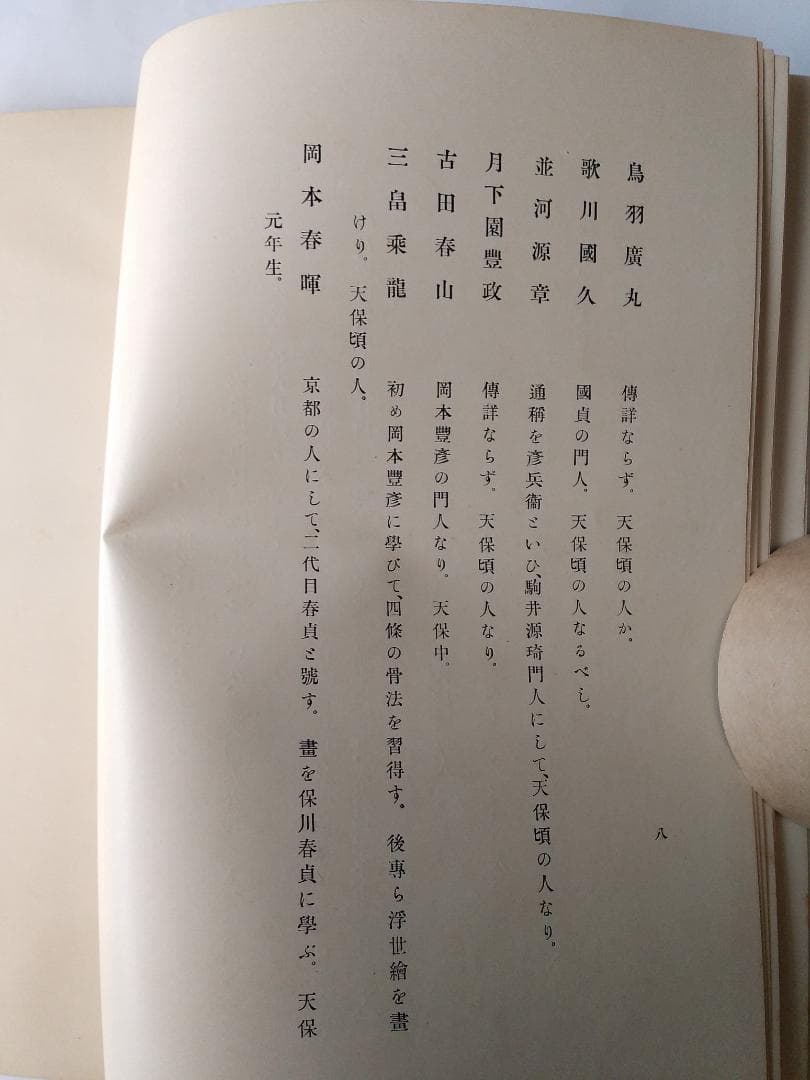 鳥羽廣丸 傳詳ならず。天保頃の人か。
歌川國久 國貞の門人。天保頃の人なるべし。
並河源章 通稱を彥兵衞といひ、駒井源琦門人にして、天保頃の人なり。
月下園豐政 傳詳ならず。天保頃の人なり。
古田春山 岡本豐彥の門人なり。天保中。
三畠乘龍 初め岡本豐彥に學びて、四條の骨法を習得す。後專ら浮世繪を畫
けり。天保頃の人。
岡本春暉 京都の人にして、二代目春貞と號す。畫を保川春貞に學ぶ。天保
元年生。
八